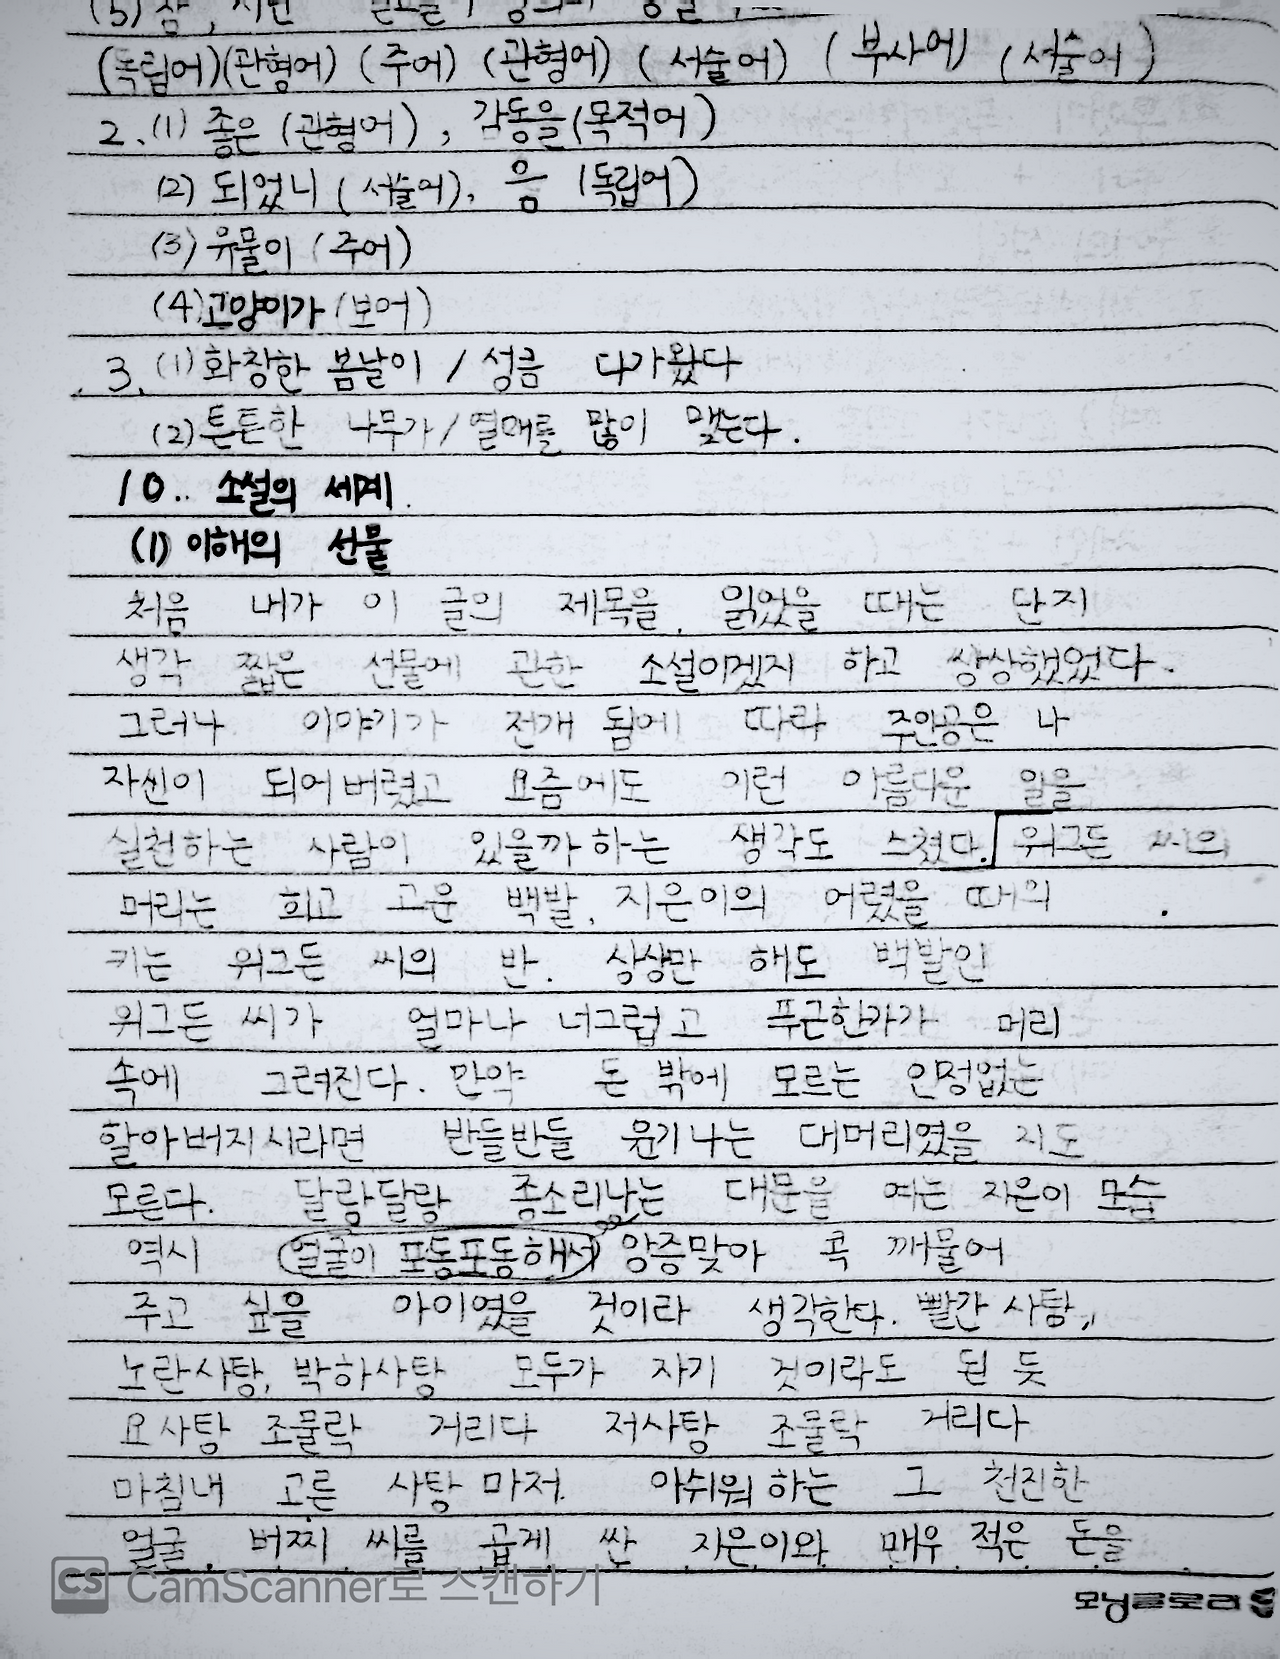 (독립어)(관형어) (주어) (관형어) (서술어) (부사어) (서술어)
2. (1) 좋은 (관형어), 감동을(목적어)
(2) 되었니 (서술어), 음 (독립어)
(3) 유물이 (주어)
(4) 고양이가 (보어)
3. (1) 화창한 봄날이 / 성큼 다가왔다
(2) 튼튼한 나무가 / 열매를 많이 맺는다.
10.. 소설의 세계.
(1) 이해의 선물
처음 내가 이 글의 제목을 읽었을 때는 단지
생각 짧은 선물에 관한 소설이겠지 하고 상상했었다.
그러나 이야기가 전개 됨에 따라 주인공은 나
자신이 되어버렸고 요즘에도 이런 아름다운 일을
실천하는 사람이 있을까하는 생각도 스쳤다. 위그든 씨의
머리는 희고 고운 백발, 지은이의 어렸을 때의
키는 위그든 씨의 반. 상상만 해도 백발인
위그든 씨가 얼마나 너그럽고 푸근한가가 머리
속에 그려진다. 만약 돈 밖에 모르는 인정없는
할아버지시라면 반들반들 윤기나는 대머리였을 지도
모른다. 달랑달랑 종소리나는 대문을 여는 지은이 모습
역시 얼굴이 포동포동해서 앙증맞아 콕 깨물어
주고 싶을 아이였을 것이라 생각한다. 빨간 사탕,
노란사탕, 박하사탕 모두가 자기 것이라도 된 듯
요사탕 조물락 거리다 저사탕 조물락 거리다
마침내 고른 사탕 마저 아쉬워하는 그 천진한
얼굴. 버찌 씨를 곱게 싼 지은이와 매우 적은 돈을
CS CamScanner로 스캔하기
모닝글로리